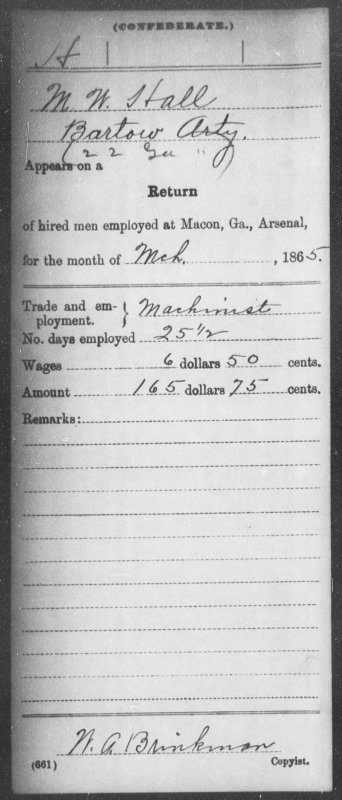 (CONFEDERATE.)
H
M. W. Hall
Bartow Arty.
(22 Ga ")
Appears on a
Return
of hired men employed at Macon, Ga., Arsenal,
for the month of Mch. , 1865.
Trade and em-
ployment. } Machinist
No. days employed 25 1/2
Wages 6 dollars 50 cents.
Amount 165 dollars 75 cents.
Remarks:
W. A. Brinkman
(661) Copyist.